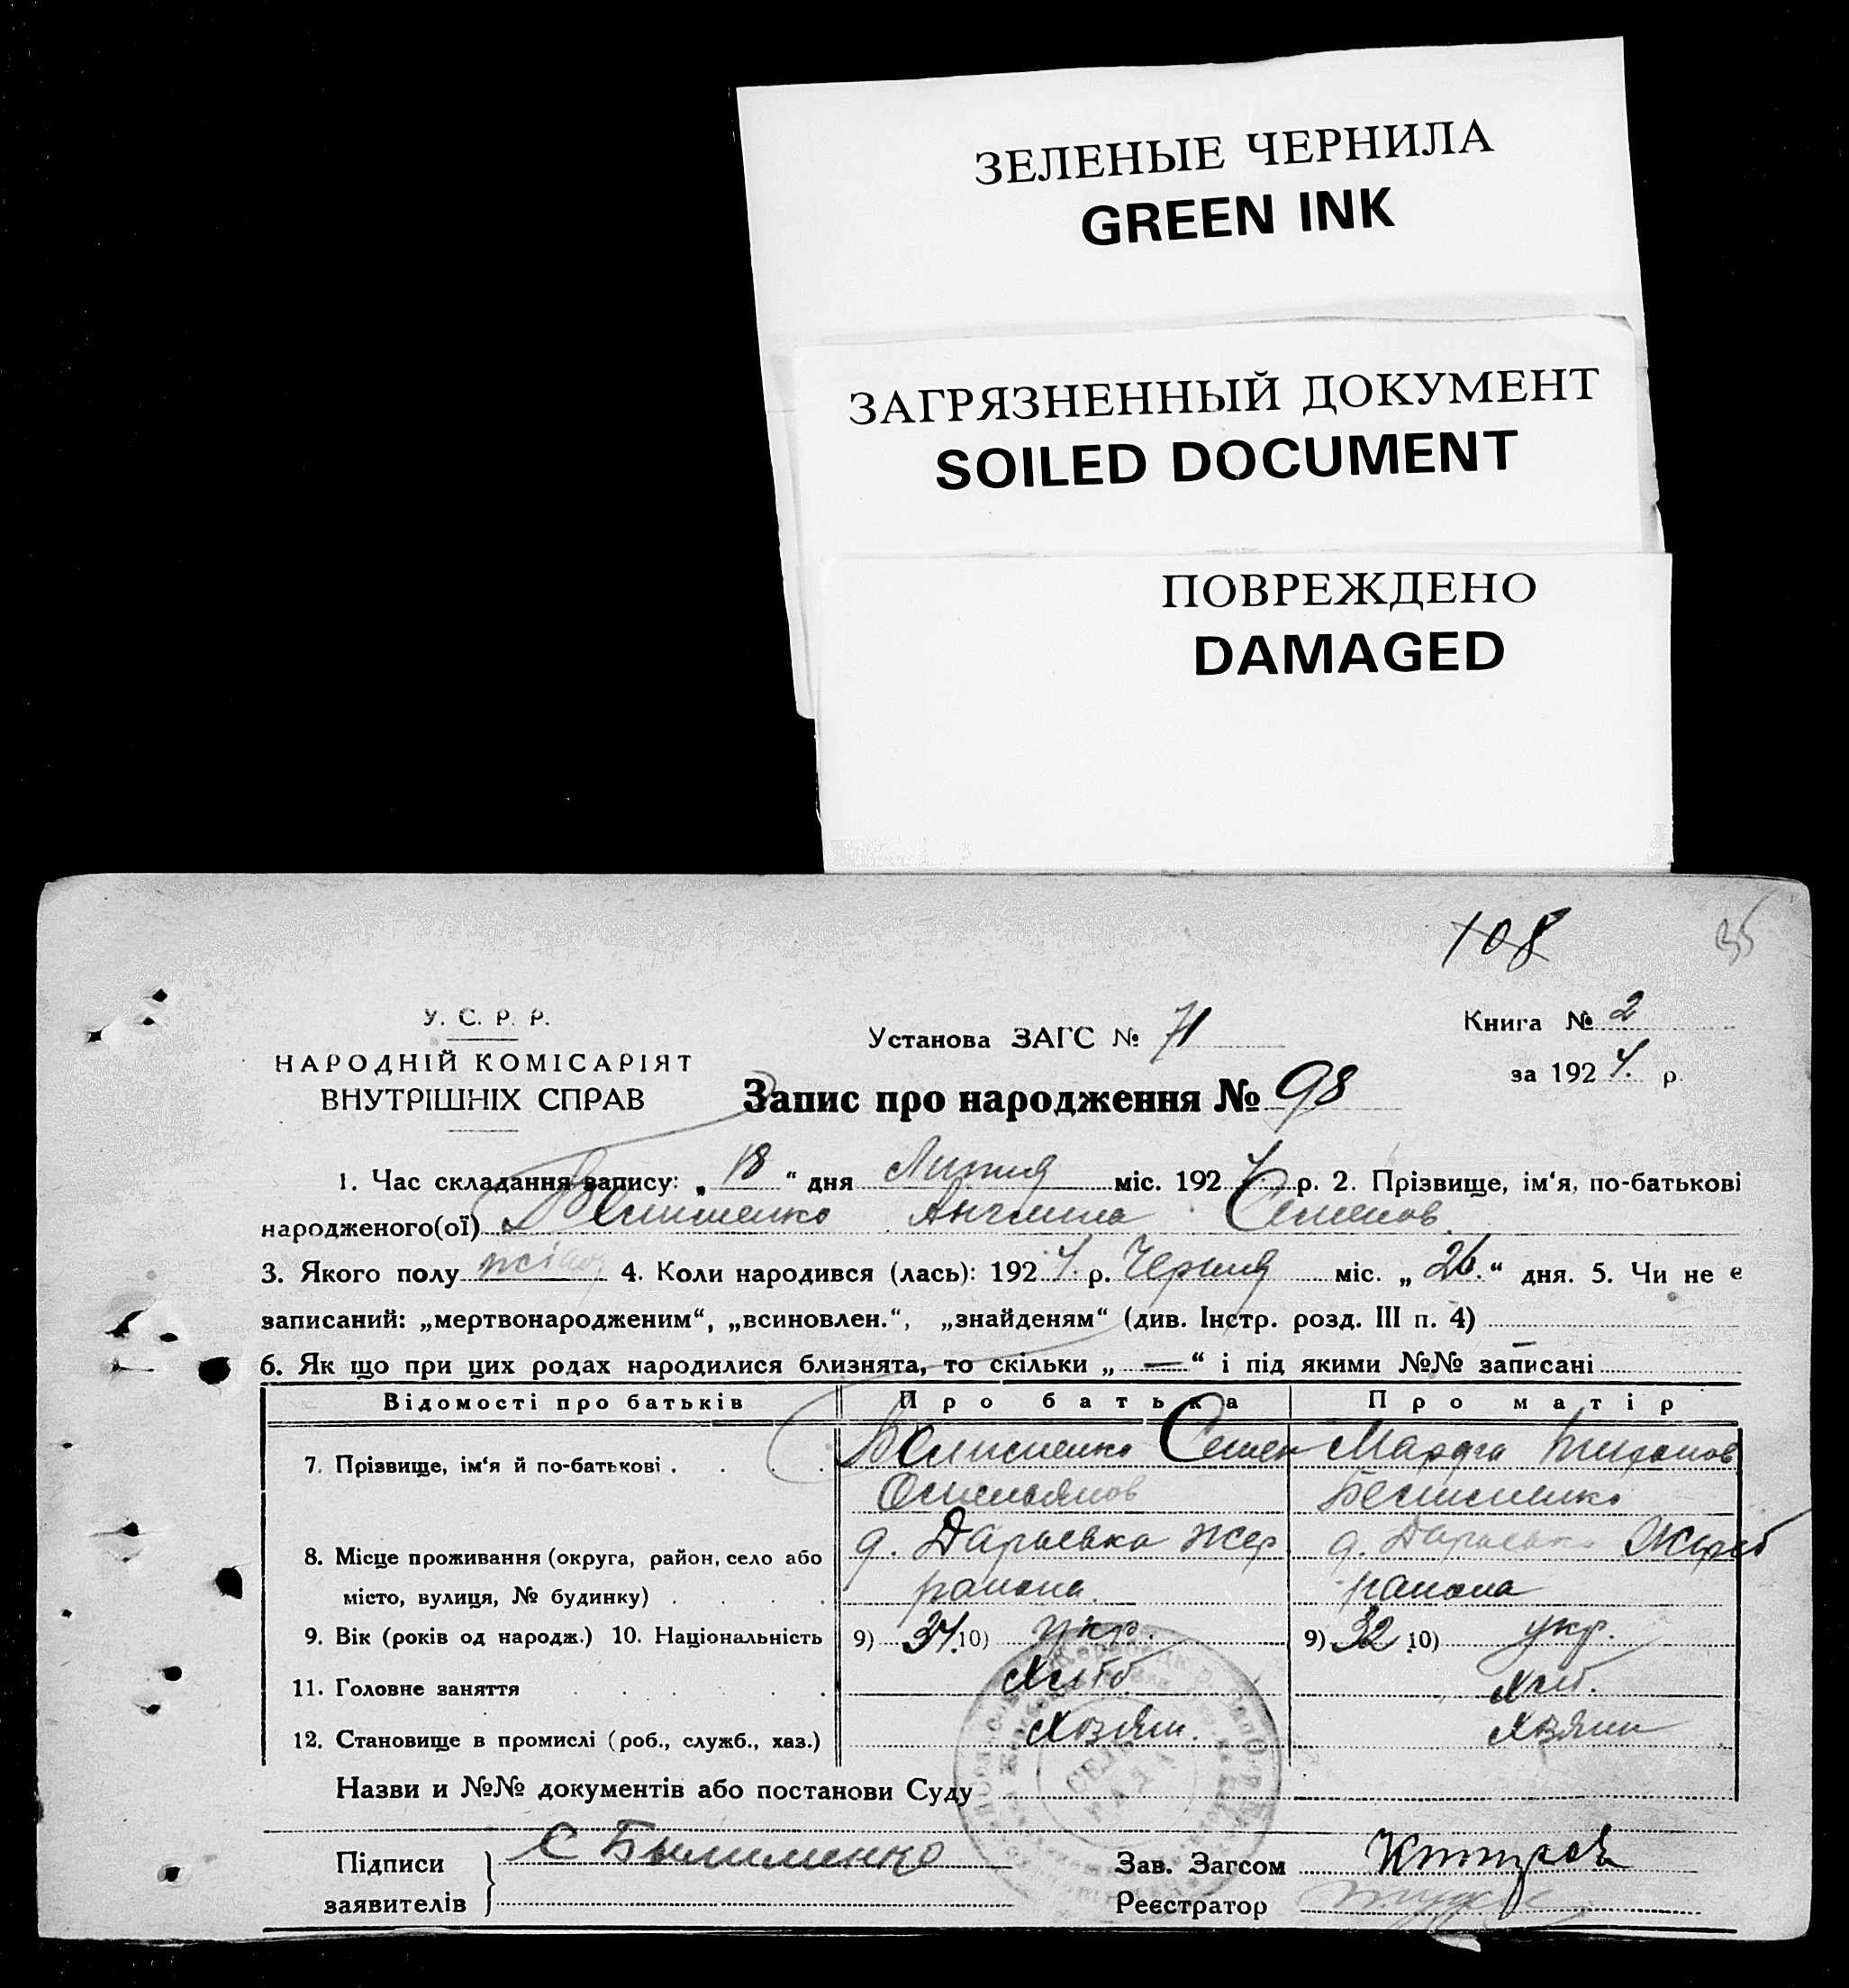 ЗЕЛЕНЫЕ ЧЕРНИЛА
GREEN INK
ЗАГРЯЗНЕННЫЙ ДОКУМЕНТ
SOILED DOCUMENT
ПОВРЕЖДЕНО
DAMAGED
108 35
У. С. Р. Р.
НАРОДНІЙ КОМІСАРІЯТ
ВНУТРІШНІХ СПРАВ
Установа ЗАГС № 71
Книга № 2
за 1924. р.
Запис про народження № 98
1. Час складання запису: „ 18 “ дня Липня міс. 1924 р. 2. Прізвище, ім‘я, по-батькові
народженого(ої) Семенов
3. Якого полу 4. Коли народився (лась): 1924. р. Червня міс. „ 26. “ дня. 5. Чи не є
записаний: „мертвонародженим“, „всиновлен.“, „знайденям“ (див. Інстр. розд. III п. 4)
6. Як що при цих родах народилися близнята, то скільки „ — “ і під якими №№ записані
Відомості про батьків Про батька Про матір
7. Прізвище, ім‘я й по-батькові . . . . Семен Марфа Тихонов
8. Місце проживання (округа, район, село або д. Дарьевка Жер. д. Дарьевка
місто, вулиця, № будинку) . . . . района. района
9. Вік (років од народж.) 10. Національність 9) 34. 10) укр. 9) 32 10) укр.
11. Головне заняття . . . . . Хліб. Хліб.
12. Становище в промислі (роб., служб., хаз.) Хозяин. Хозяин
Назви и №№ документів або постанови Суду
СЕЛЬ
РАДА
Підписи
заявителів
С
Зав. Загсом
Реєстратор